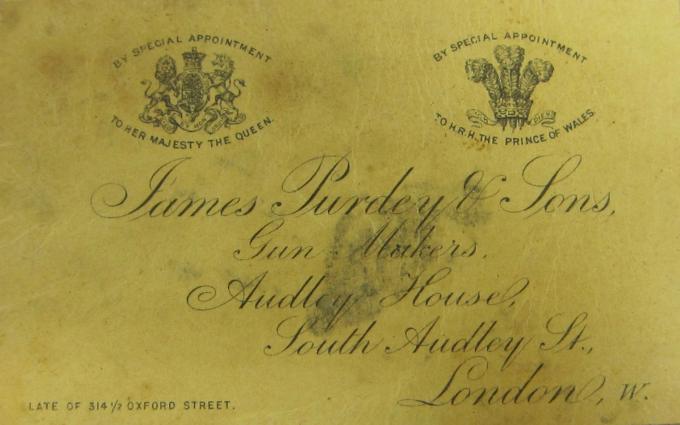 BY SPECIAL APPOINTMENT
TO HER MAJESTY THE QUEEN.
BY SPECIAL APPOINTMENT
TO H.R.H. THE PRINCE OF WALES.
James Purdey & Sons,
Gun Makers.
Audley House,
South Audley St.,
London, W.
LATE OF 314 1/2 OXFORD STREET.